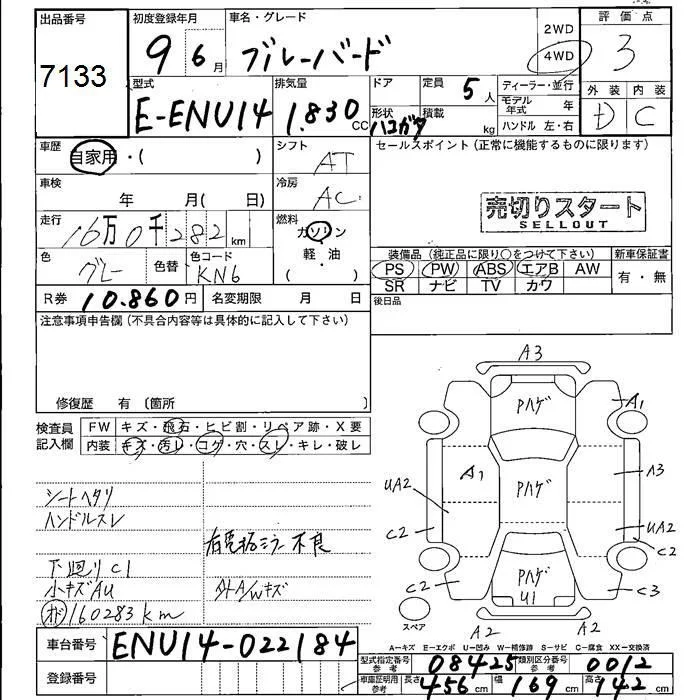 出品番号 初度登録年月 車名・グレード 2WD 評価点
7133 9年 6月 ブルーバード 4WD 3
型式 排気量 ドア 定員 5人 ディーラー・並行 外装 内装
E-ENU14 1.830 CC 形状 ハコガタ 積載 kg モデル年式 年 D C
ハンドル 左・右
車歴 自家用・( ) シフト AT セールスポイント(正常に機能するものに限ります)
車検 年 月( 日) 冷房 AC 売切りスタート
SELLOUT
走行 16万0千282km 燃料 ガソリン
軽・油
( )
色 グレー 色替 色コード KN6 装備品(純正品に限り○をつけて下さい) 新車保証書
PS PW ABS エアB AW 有・無
SR ナビ TV カワ
R券 10.860円 名変期限 月 日 後日品
注意事項申告欄(不具合内容等は具体的に記入して下さい)
修復歴 有 〔箇所 〕
検査員記入欄 FW キズ・飛石・ヒビ割・リペア跡・X要
内装 キズ・汚レ・コゲ・穴・スレ・キレ・破レ
シートヘタリ
ハンドルスレ
右電格ミラー不良
下廻りC1
小キズAU 外A/Wキズ
160283km
A3
Pハゲ
A1
A1 Pハゲ A3
UA2 UA2
C2 C2
Pハゲ
U1
C2 C3
スペア A2 A2
A=キズ E=エクボ U=凹み W=補修跡 S=サビ C=腐食 XX=交換済
車台番号 ENU14-022184
型式指定番号 参考 08425 類別区分番号 参考 0012
登録番号 車庫証明用 参考 長さ 456cm 幅 169cm 高さ 142cm